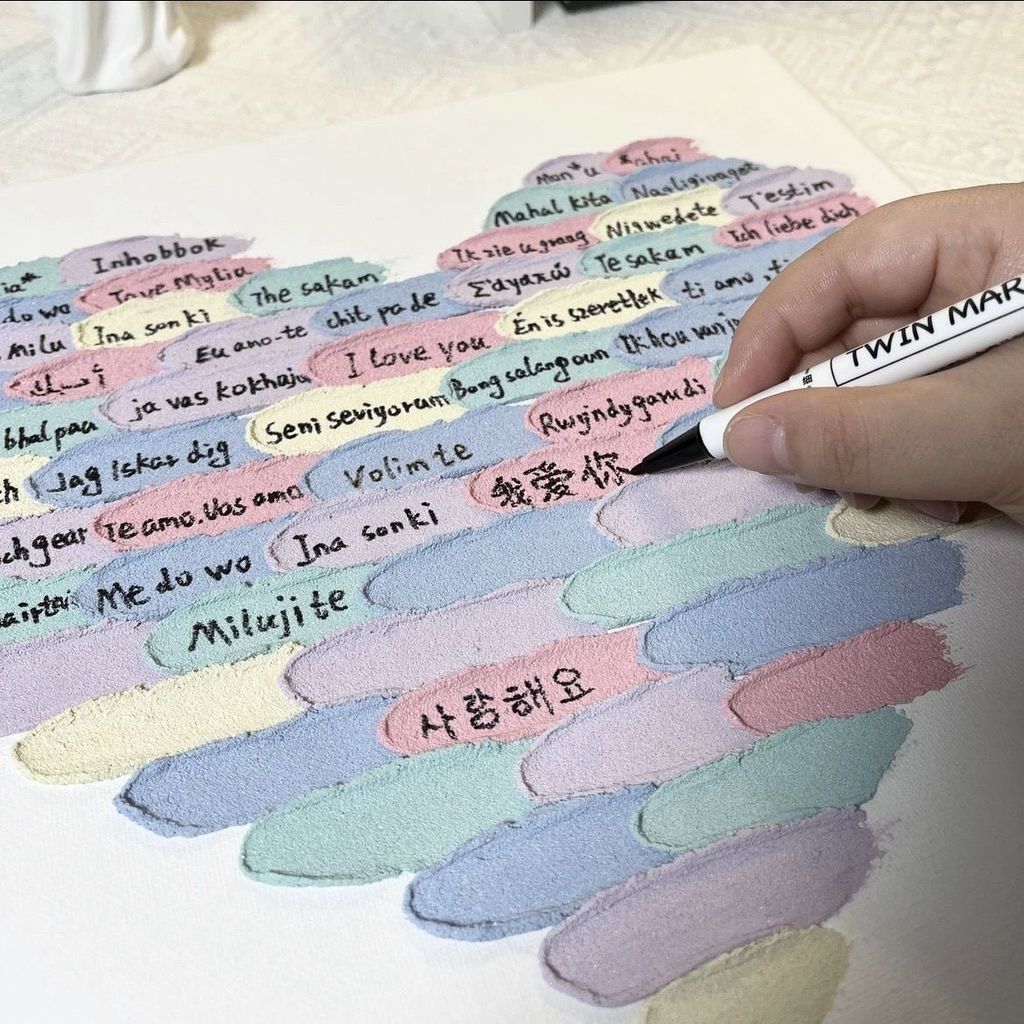 Mahal kita
T'estim
Inhobbok
Ik zie u graag
Niswedete
Ich liebe dich
Tave Mylia
The sakam
Σ'αγαπώ
Te sakam
do wo
Ina sonki
chit pa de
Én is szeretlek
ti amo
Milu
Eu amo-te
I love you
Ik hou van
أحبك
ja vas kokhaju
Bong salang oun
bhal paa
Seni seviyorum
Rwyindygarudi
Jag Iskar dig
Volim te
我爱你
ch gear
Te amo. Vos amo
Ina sonki
Me do wo
Milujite
사랑해요
TWIN MAR